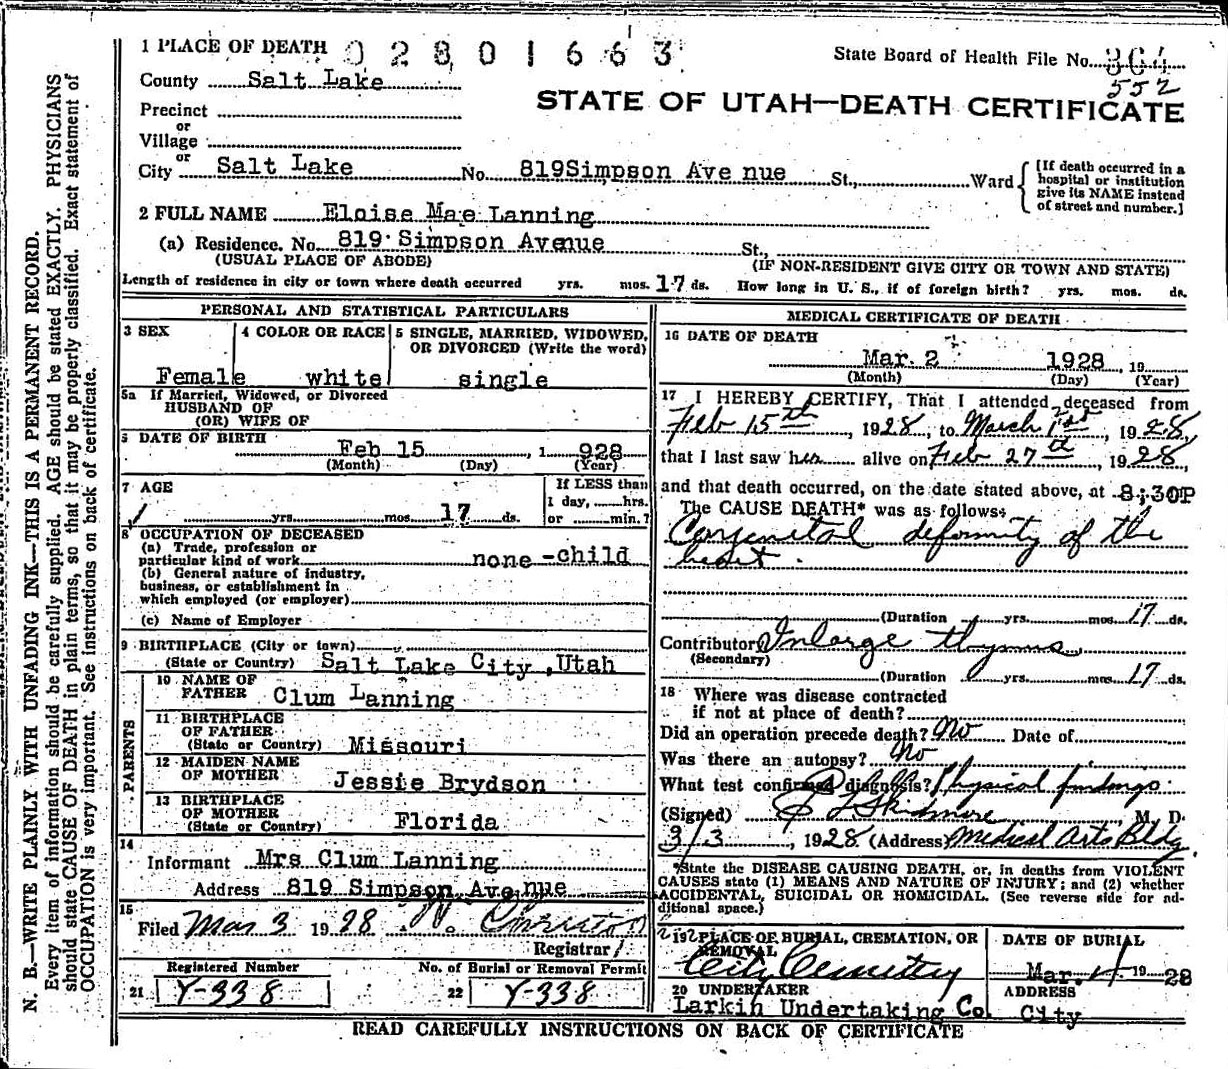 1 PLACE OF DEATH 02801663
State Board of Health File No. 364
552
County Salt Lake
STATE OF UTAH—DEATH CERTIFICATE
Precinct
or
Village
or
City Salt Lake No. 819Simpson Ave nue St., Ward
[If death occurred in a
hospital or institution
give its NAME instead
of street and number.]
2 FULL NAME Eloise Mae Lanning
(a) Residence. No. 819 Simpson Avenue St.,
(USUAL PLACE OF ABODE) (IF NON-RESIDENT GIVE CITY OR TOWN AND STATE)
Length of residence in city or town where death occurred yrs. mos. 17 ds. How long in U. S., if of foreign birth? yrs. mos. ds.
PERSONAL AND STATISTICAL PARTICULARS
3 SEX 4 COLOR OR RACE 5 SINGLE, MARRIED, WIDOWED,
OR DIVORCED (Write the word)
Female white single
5a If Married, Widowed, or Divorced
HUSBAND OF
(OR) WIFE OF
6 DATE OF BIRTH Feb 15, 1 928
(Month) (Day) (Year)
7 AGE yrs. mos. 17 ds.
If LESS than
1 day, hrs.
or min.?
8 OCCUPATION OF DECEASED
(a) Trade, profession or
particular kind of work none -child
(b) General nature of industry,
business, or establishment in
which employed (or employer)
(c) Name of Employer
9 BIRTHPLACE (City or town)
(State or Country) Salt Lake City ,Utah
PARENTS
10 NAME OF
FATHER Clum Lanning
11 BIRTHPLACE
OF FATHER
(State or Country) Missouri
12 MAIDEN NAME
OF MOTHER Jessie Brydson
13 BIRTHPLACE
OF MOTHER
(State or Country) Florida
14
Informant Mrs Clum Lanning
Address 819 Simpson Ave nue
15
Filed Mar 3 1928
Registrar
Registered Number No. of Burial or Removal Permit
21 Y-338 22 Y-338
MEDICAL CERTIFICATE OF DEATH
16 DATE OF DEATH
Mar. 2 1928, 19
(Month) (Day) (Year)
17 I HEREBY CERTIFY, That I attended deceased from
Feb 15th, 1928, to March, 1928,
that I last saw her alive on Feb 27th, 1928,
and that death occurred, on the date stated above, at 8:30P
The CAUSE DEATH* was as follows:
Congenital deformity of the
heart.
(Duration yrs. mos. 17 ds.
Contributory Inlarge thymus
(Secondary)
(Duration yrs. mos. 17 ds.
18 Where was disease contracted
if not at place of death?
Did an operation precede death? No Date of
Was there an autopsy? No
What test confirmed diagnosis? Physical findings
(Signed) Skidmore, M. D.
3/3, 1928 (Address) Medical Arts Bldg.
*State the DISEASE CAUSING DEATH, or, in deaths from VIOLENT
CAUSES state (1) MEANS AND NATURE OF INJURY; and (2) whether
ACCIDENTAL, SUICIDAL OR HOMICIDAL. (See reverse side for ad-
ditional space.)
19 PLACE OF BURIAL, CREMATION, OR
REMOVAL
City Cemetery
DATE OF BURIAL
Mar. 4 19 28
20 UNDERTAKER
Larkin Undertaking Co.
ADDRESS
City
READ CAREFULLY INSTRUCTIONS ON BACK OF CERTIFICATE
N. B.—WRITE PLAINLY WITH UNFADING INK—THIS IS A PERMANENT RECORD.
Every item of information should be carefully supplied. AGE should be stated EXACTLY. PHYSICIANS
should state CAUSE OF DEATH in plain terms, so that it may be properly classified. Exact statement of
OCCUPATION is very important. See instructions on back of certificate.